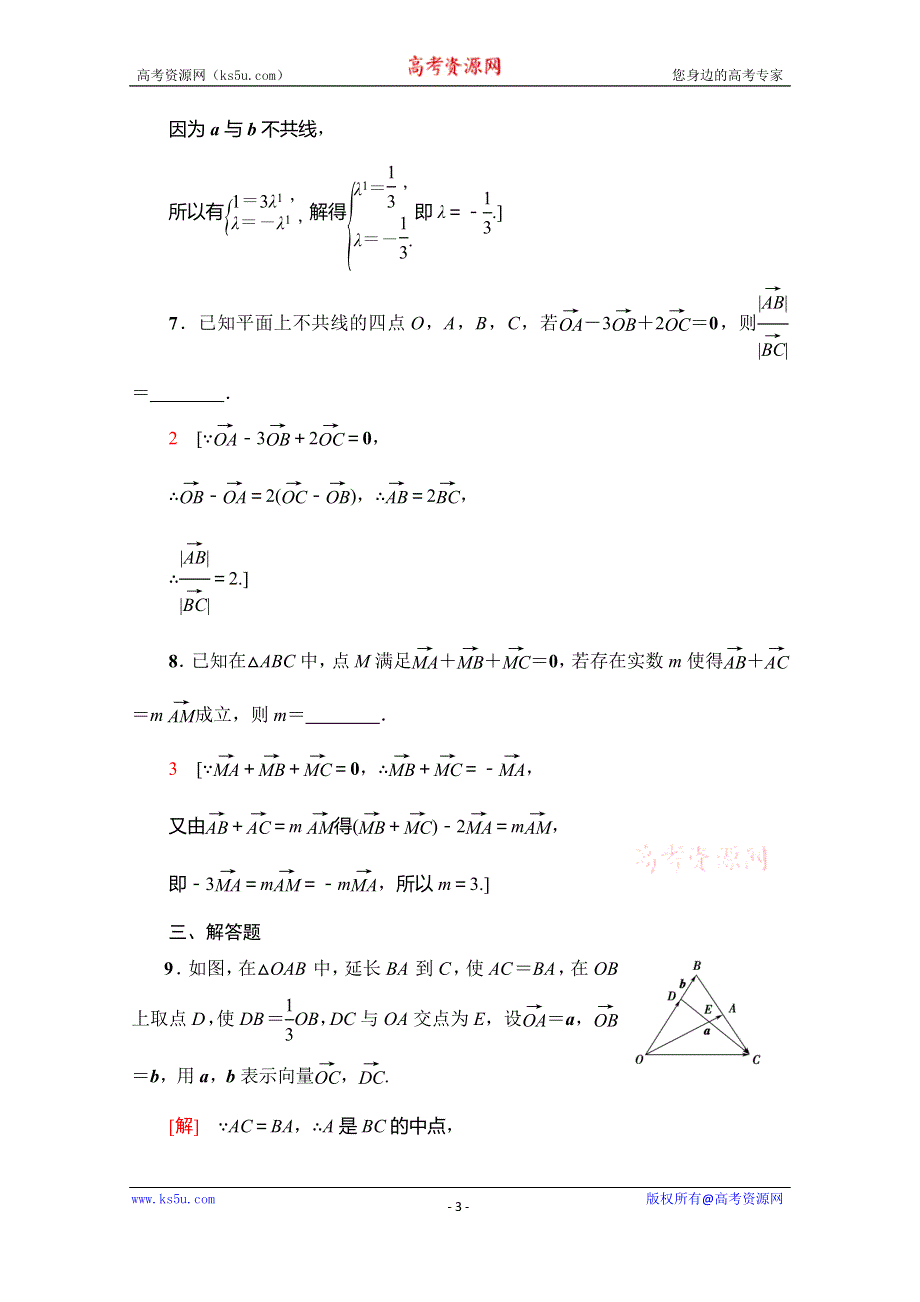 高考资源网（ks5u.com） 高考资源网 您身边的高考专家
因为 a 与 b 不共线，
所以有{1＝3λ1，λ＝－λ1，解得{λ1＝1/3，λ＝－1/3. 即 λ＝－1/3.]
7．已知平面上不共线的四点 O，A，B，C，若OA→－3OB→＋2OC→＝0，则|AB→|/|BC→|
＝________．
2 [∵OA→－3OB→＋2OC→＝0，
∴OB→－OA→＝2(OC→－OB→)，∴AB→＝2BC→，
∴|AB→|/|BC→|＝2.]
8．已知在△ABC 中，点 M 满足MA→＋MB→＋MC→＝0，若存在实数 m 使得AB→＋AC→
＝m AM→成立，则 m＝________．
3 [∵MA→＋MB→＋MC→＝0，∴MB→＋MC→＝－MA→，
又由AB→＋AC→＝m AM→得(MB→＋MC→)－2MA→＝mAM→，
高考资源网
即－3MA→＝mAM→＝－mMA→，所以 m＝3.]
三、解答题
9．如图，在△OAB 中，延长 BA 到 C，使 AC＝BA，在 OB
上取点 D，使 DB＝1/3OB，DC 与 OA 交点为 E，设OA→＝a，OB→
＝b，用 a，b 表示向量OC→，DC→.
B
b
D
E
A
a
O
C
[解] ∵AC＝BA，∴A 是 BC 的中点，
www.ks5u.com - 3 - 版权所有@高考资源网